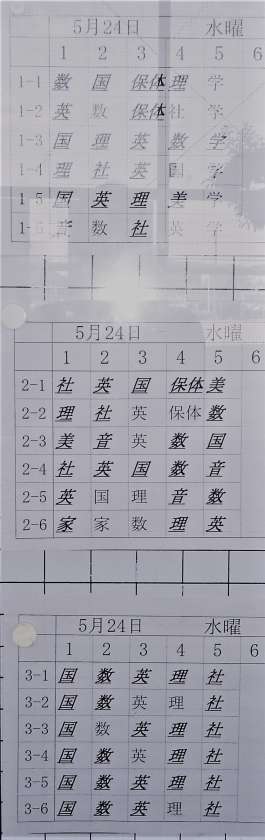 5月24日 水曜
1 2 3 4 5 6
1-1 数 国 保体 理 学
1-2 英 数 保体 社 学
1-3 国 理 英 数 学
1-4 理 社 英 国 学
1-5 国 英 理 美 学
1-6 音 数 社 英 学
5月24日 水曜
1 2 3 4 5 6
2-1 社 英 国 保体 美
2-2 理 社 英 保体 数
2-3 美 音 英 数 国
2-4 社 英 国 数 音
2-5 英 国 理 音 数
2-6 家 家 数 理 英
5月24日 水曜
1 2 3 4 5 6
3-1 国 数 英 理 社
3-2 国 数 英 理 社
3-3 国 数 英 理 社
3-4 国 数 英 理 社
3-5 国 数 英 理 社
3-6 国 数 英 理 社